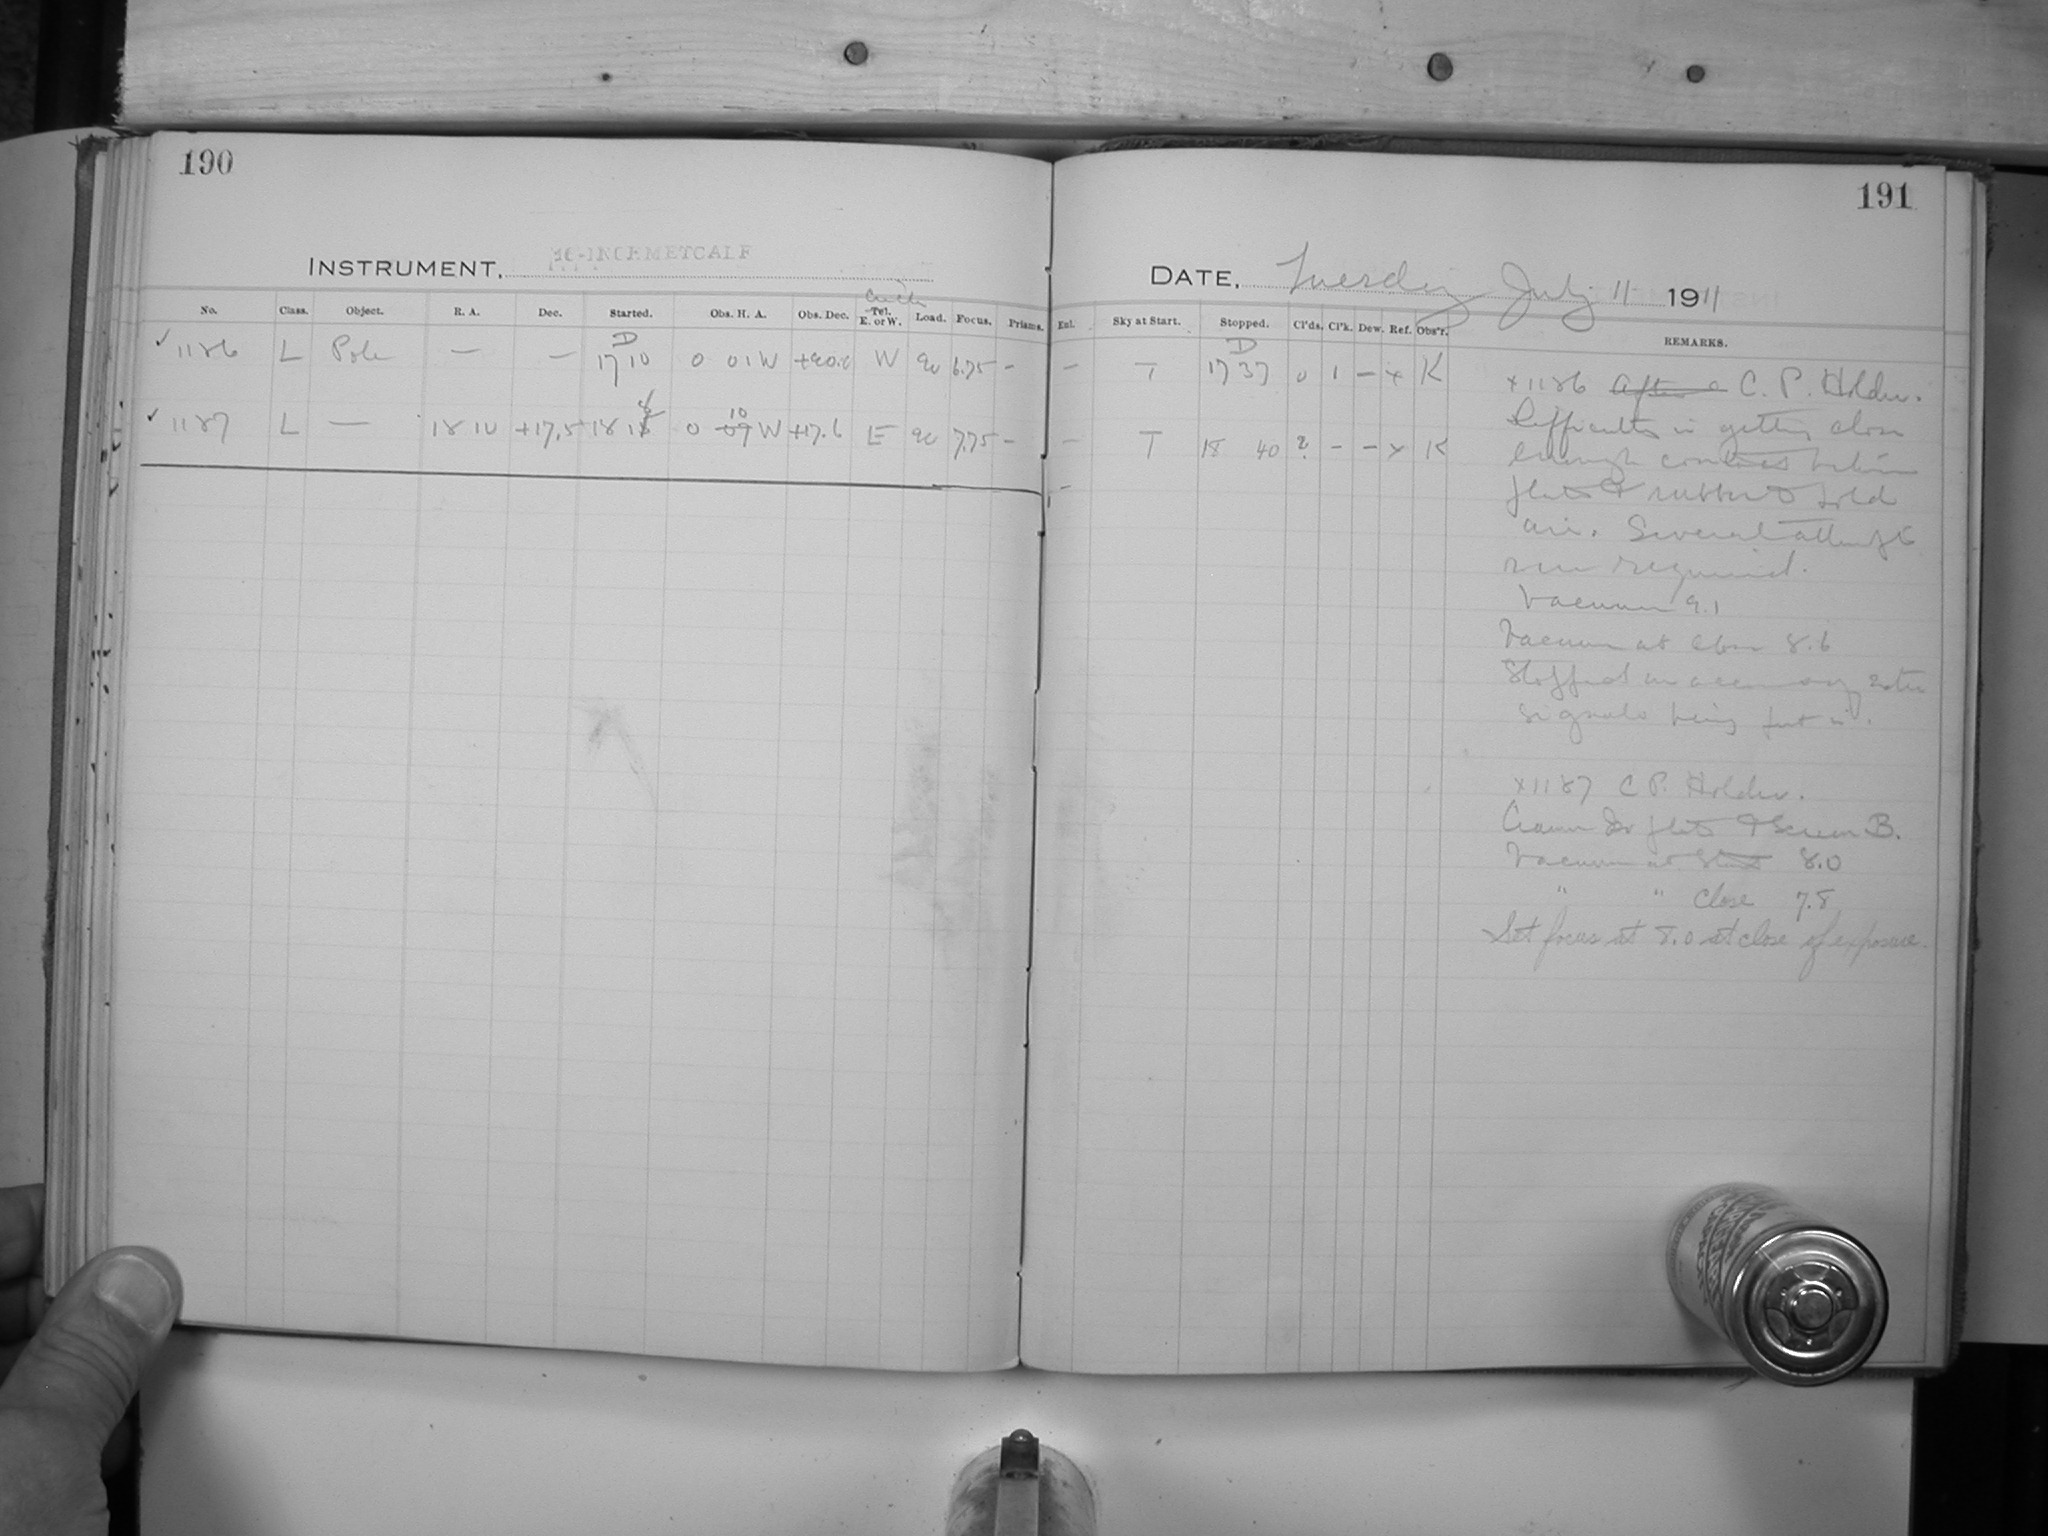 190
191
INSTRUMENT, 16-INCH METCALF
DATE, Tuesday July 11 1911
Circle
No. Class. Object. R. A. Dec. Started. Obs. H. A. Obs. Dec. Tel. E. or W. Load. Focus. Prisms. Enl. Sky at Start. Stopped. Cl'ds. Cl'k. Dew. Ref. Obs'r. REMARKS.
D D
✓ 1186 L Pole — — 17 10 0 01 W +90.0 W 90 6.75 - - T 17 37 0 1 — x K
✓ 1187 L — 18 10 +17.5 18 18 0 10 W +17.6 E 90 7.75 - - T 18 40 2 - - x K
x1186 C. P. Holder.
Difficulty in getting close
enough contact between
plate & rubber to hold
air. Several attempts
required.
Vacuum 9.1
Vacuum at close 8.6
Stopped on
signals being put in.
x1187 C P. Holder.
plate & Screen B.
Vacuum at Start 8.0
" " Close 7.8
Set focus at 8.0 at close of exposure.